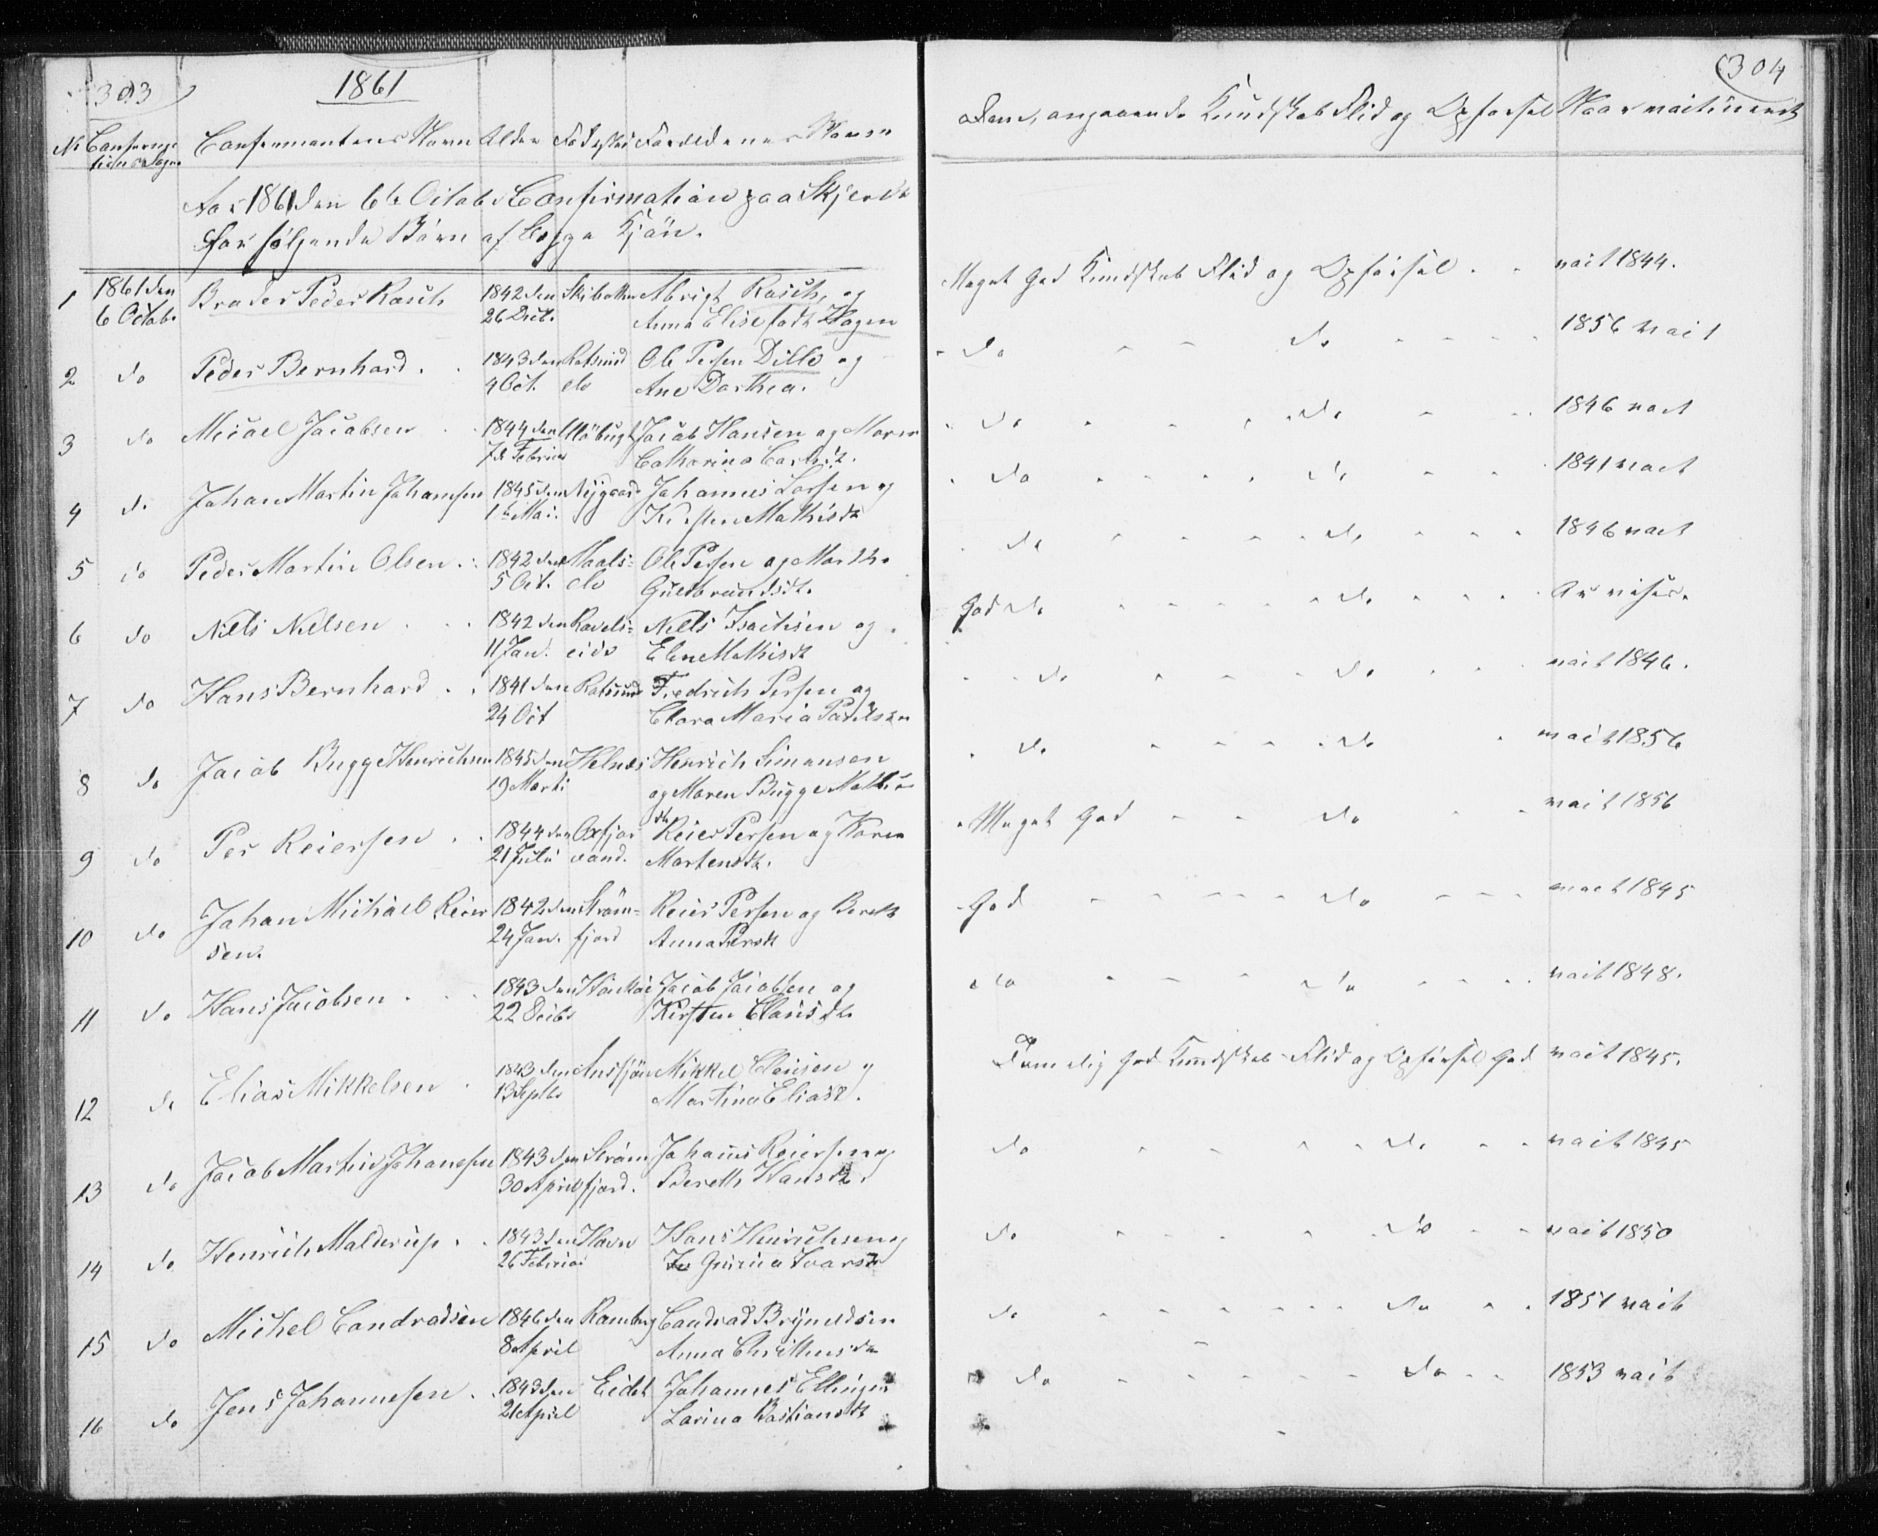 303
1861
No Confirmationsdage Confirmantens Navn Alder Fødested Forældrenes Navn
Aar 1861 den 6te Octob. Confirmation paa Skjervø
for følgende Børn af begge Kjøn.
1 1861 den 6 Octob. Brader Peder Rasch 1842 den 26 Oct. Skibotten Abrigt Rasch, og
Anna Elise født Hagen
2 do Peder Bernhard. 1843 den 4 Oct. Rotsund elv Ole Persen Dille og
Ane Dorthea.
3 do Micael Jacobsen 1844 den 7de Februar Jacob Hansen og Maren
Catharina Carlsdt.
4 do Johan Martin Johannesen 1845 den 1te Mai. Nygaard Johannes Larsen og
Kirsten Mathisdt
5 do Peder Martin Olsen 1842 den 5 Oct. Maalselv Ole Persen og Marthe
Gulbrandsdt.
6 do Niels Nielsen 1842 den 11 Jan. Ravelseide Niels Isachsen og
Elen Mathisdt
7 do Hans Bernhard 1841 den 24 Oct Rotsund Fredrich Persen og
Clara Maria Paulsen
8 do Jacob Bugge Henrichsen 1845 den 19 Marti Helnes Henrich Simonsen
og Maren Bugge Mathisdt
9 do Per Reiersen 1844 den 21 Juli Oxfjordvand. Reier Persen og Karen
Martensdt.
10 do Johan Michael Reiersen. 1842 den 24 Jan. Strømfjord Reier Persen og Bereth
Anna Persdt
11 do Hans Jacobsen 1843 den 22 Jacob Jacobsen og
Kirsten Clausdt.
12 do Elias Mikkelsen 1843 den 13 Septbr Mikkel Clausen og
Martina Eliasdt.
13 do Jacob Martin Johannesen 1843 den 30 April Strømfjord. Johannes Reiersen og
Bereth Hansdt.
14 do Henrich Maldrup 1843 den 26 Februar Havn Hans Henrichsen og
Gurina Ivarsdt
15 do Michel Conradsen 1846 den 8 April Ramberg Conrad Brynildsen
Anna Christensdt
16 do Jens Johannesen 1843 den 21 April Eidet Johannes Ellingsen
Larina Bastiansdt
304
Dom, angaaende Kundskab Flid og Opførsel Naar vaccineret
Meget God Kundskab Flid og Opførsel vact 1844.
do do 1856 vact
do do 1846 vact
do do 1841 vact
do do 1846 vact
God do do
do do vact 1846.
do do vact 1856
Meget God do vact 1856
God do vact 1845
do do vact 1848.
Temelig God Kundskab Flid og Opførsel God vact 1845.
do do vact 1845
do do vact 1850
do do 1851 vact
do do 1853 vact